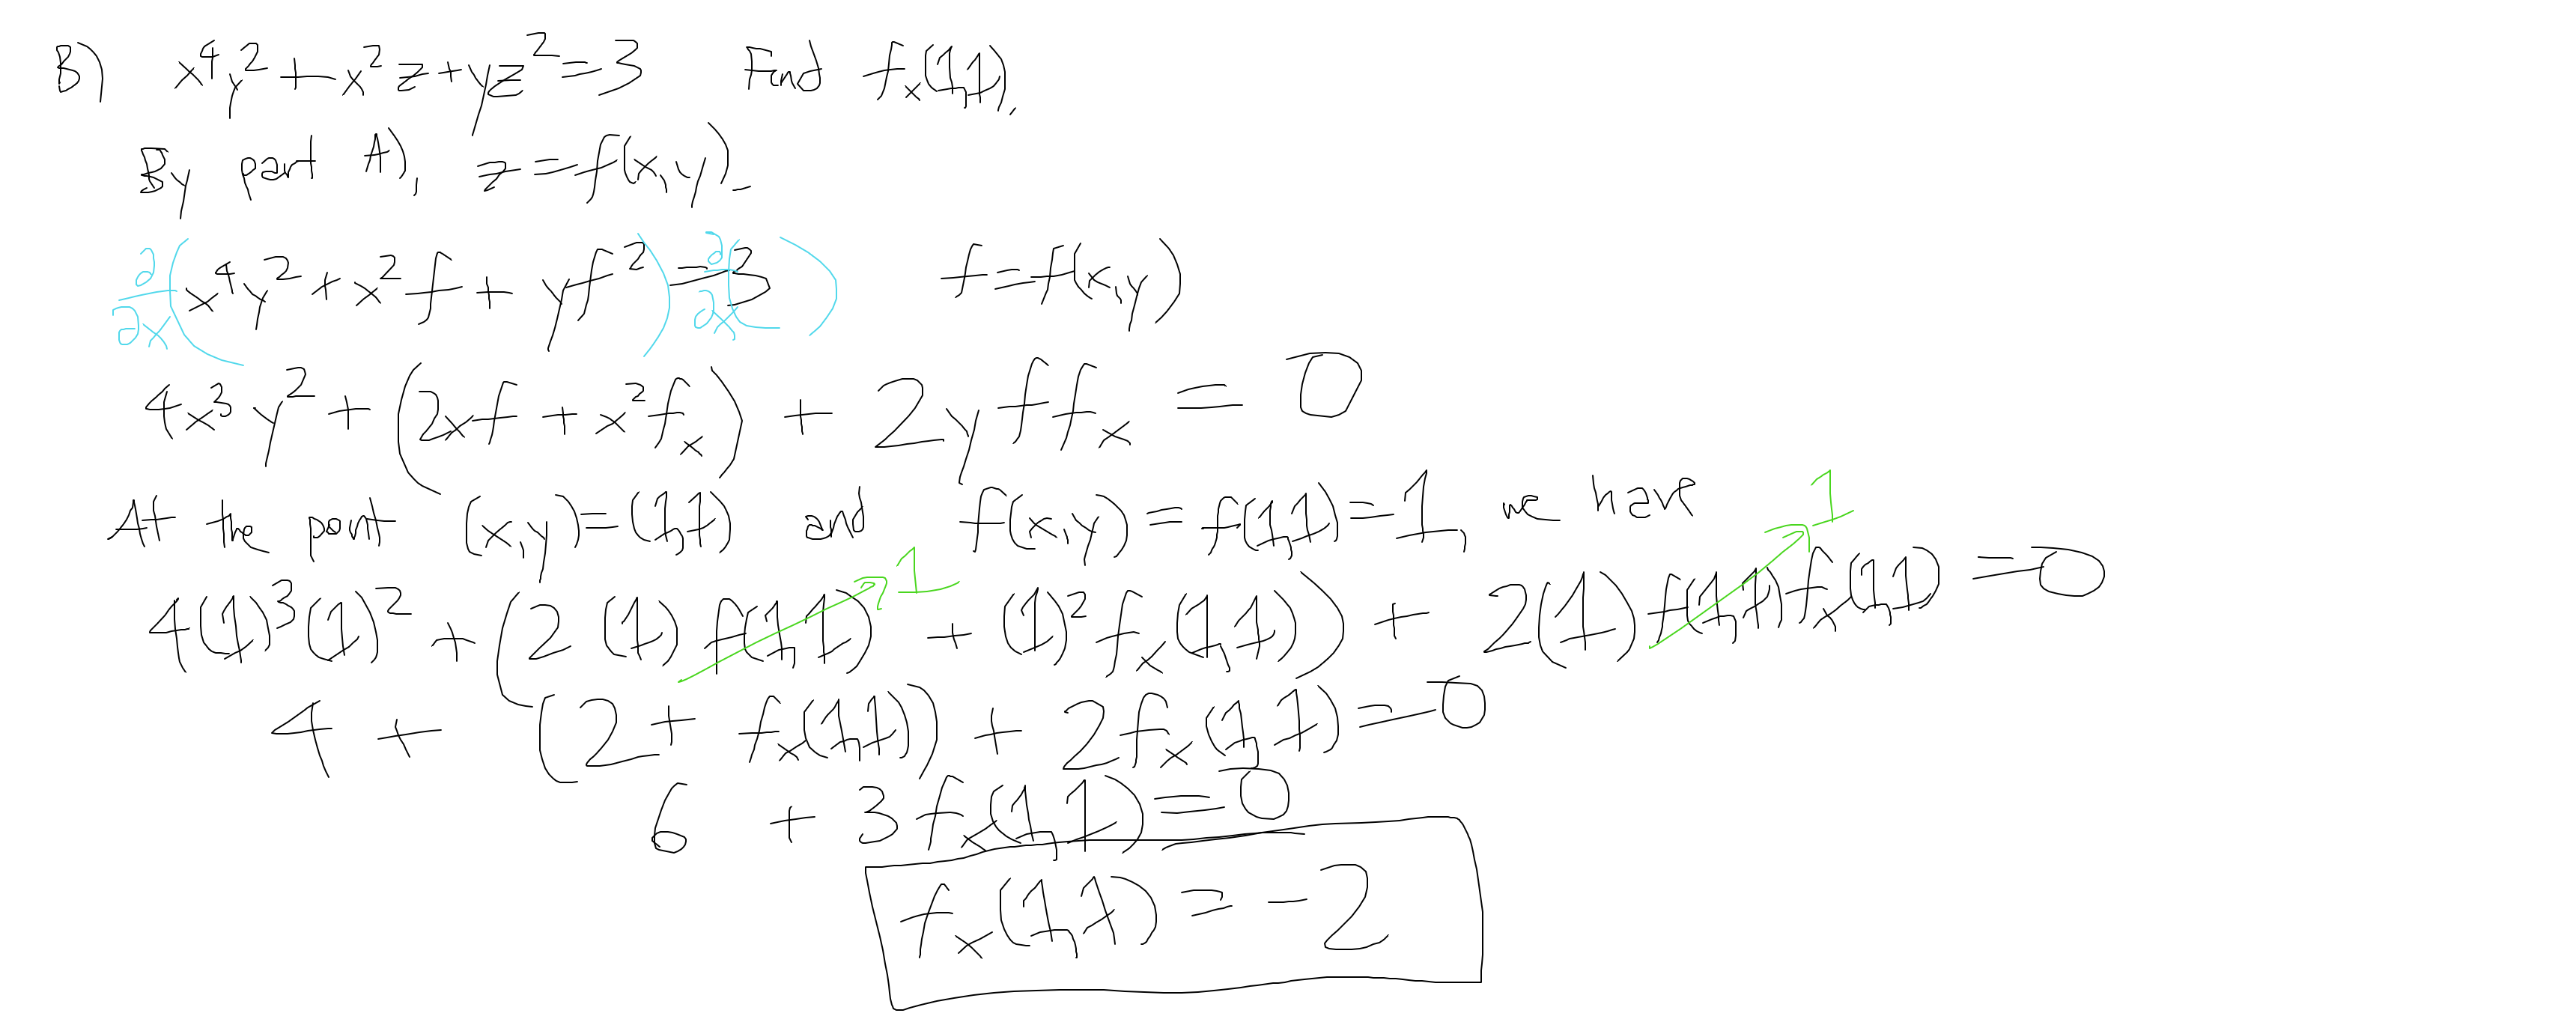 B) x⁴y² + x²z + yz² = 3 Find fₓ(1,1).
By part A), z = f(x,y).
∂/∂x (x⁴y² + x²f + yf²) = ∂/∂x (3) f = f(x,y)
4x³y² + (2xf + x²fₓ) + 2yffₓ = 0
At the point (x,y) = (1,1) and f(x,y) = f(1,1) = 1, we have
4(1)³(1)² + (2(1)f(1,1)→1 + (1)²fₓ(1,1)) + 2(1)f(1,1)→1 fₓ(1,1) = 0
4 + (2 + fₓ(1,1)) + 2fₓ(1,1) = 0
6 + 3fₓ(1,1) = 0
fₓ(1,1) = -2